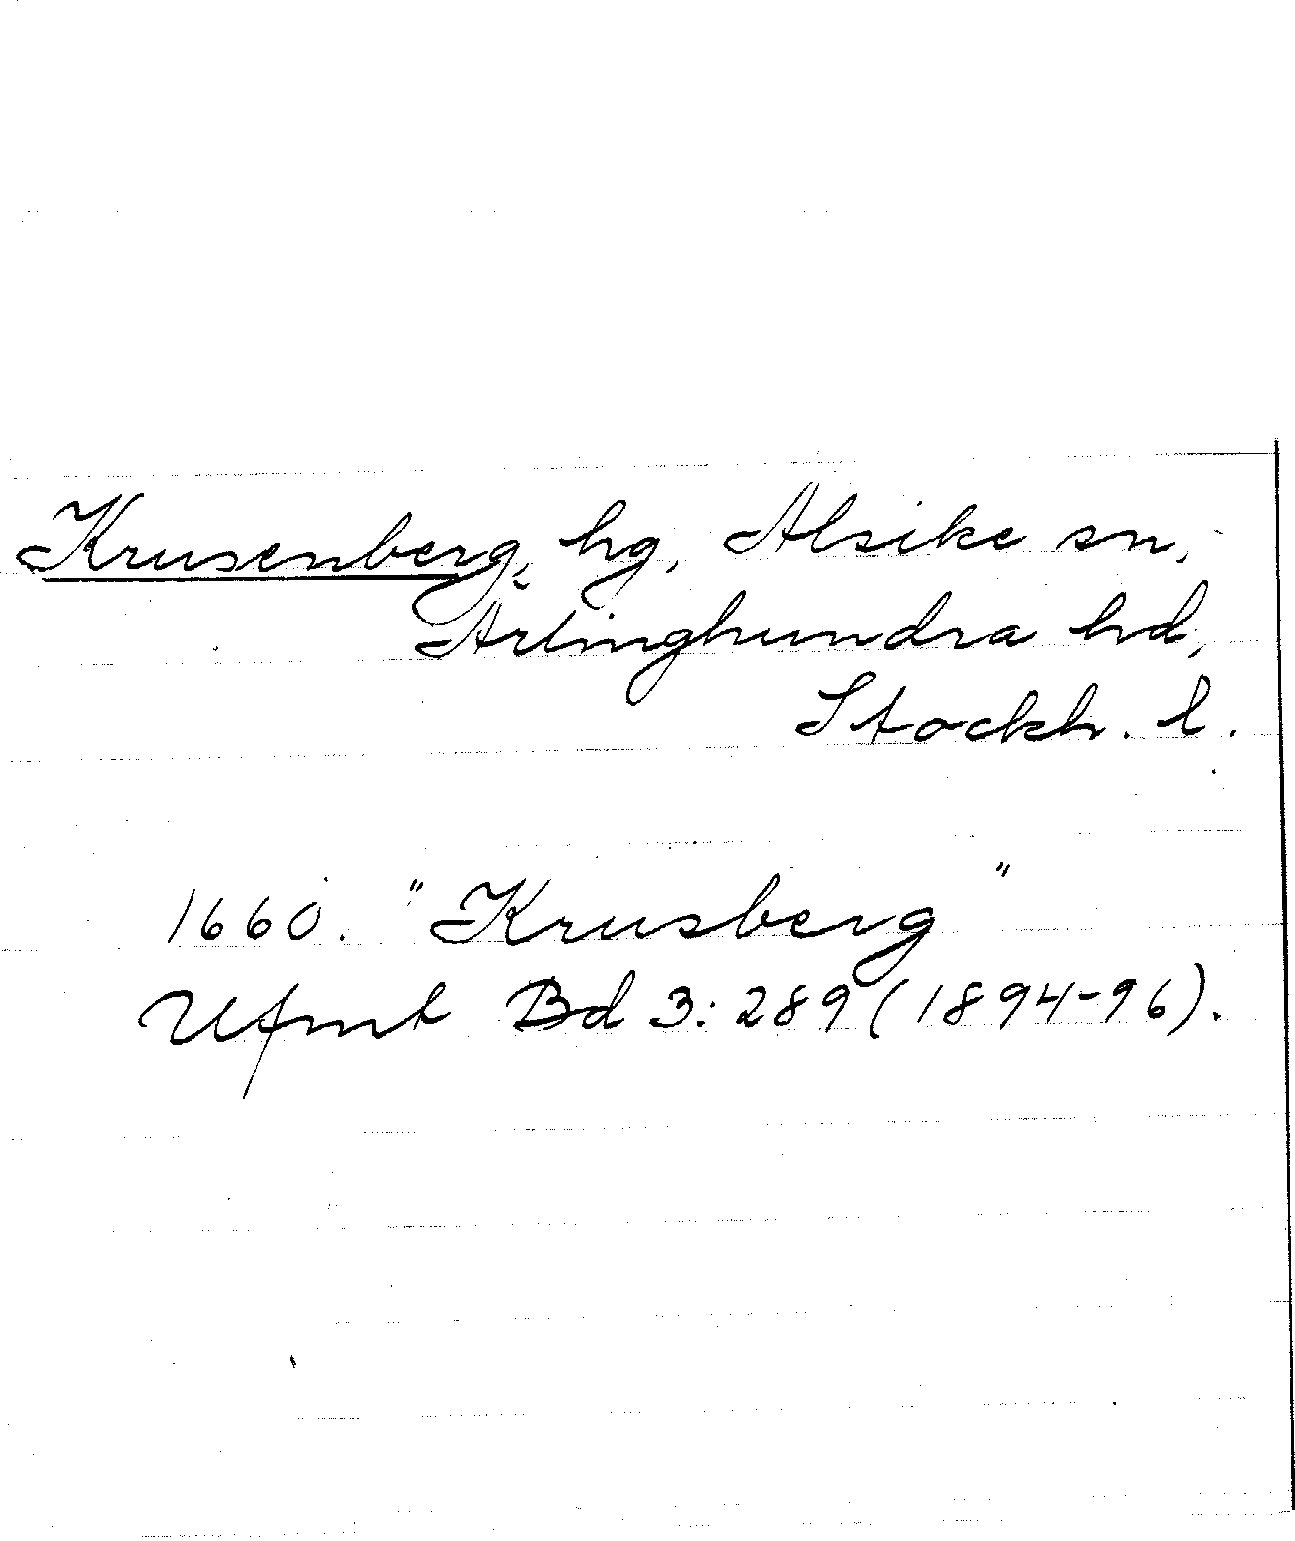 Krusenberg, hg, Alsike sn,
Ärlinghundra hd,
Stockh. l.
1660. "Krusberg"
Ufmt Bd 3: 289 (1894-96).